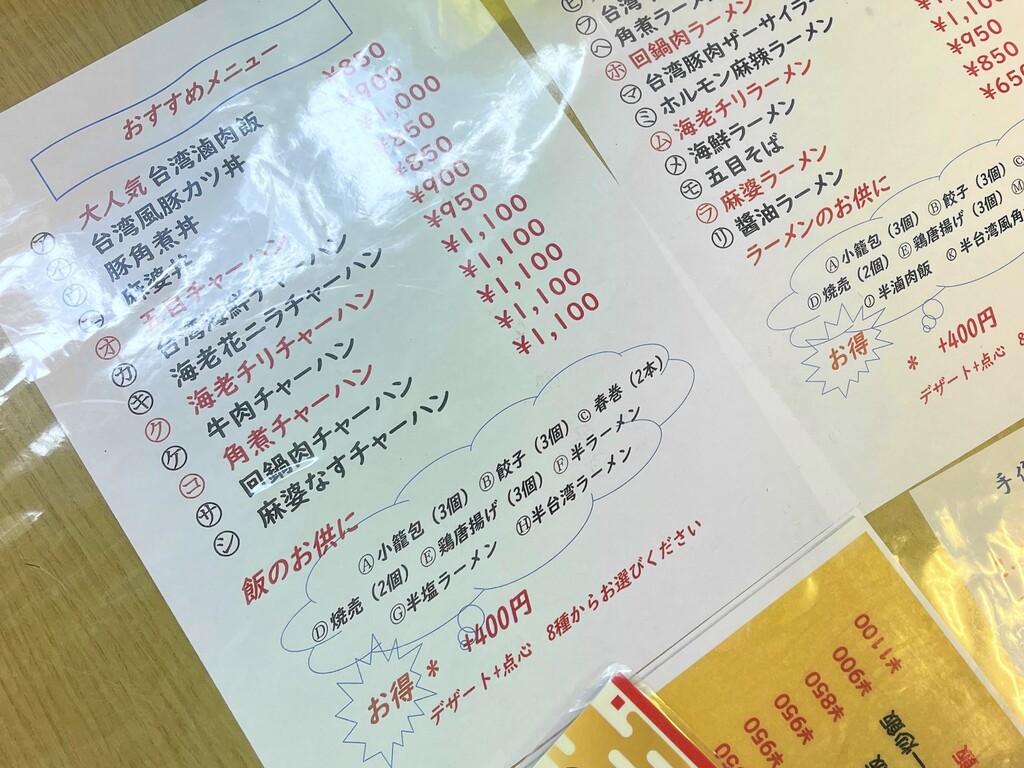 おすすめメニュー
㋐ 大人気 台湾滷肉飯 ¥850
㋑ 台湾風豚カツ丼 ¥900
㋒ 豚角煮丼 ¥1,000
麻婆丼 ¥850
㋔ 五目チャーハン ¥850
㋕ 台湾海鮮チャーハン ¥900
㋖ 海老花ニラチャーハン ¥950
㋗ 海老チリチャーハン ¥1,100
㋘ 牛肉チャーハン ¥1,100
㋙ 角煮チャーハン ¥1,100
㋚ 回鍋肉チャーハン ¥1,100
㋛ 麻婆なすチャーハン ¥1,100
飯のお供に
Ⓐ小籠包（3個）Ⓑ餃子（3個）Ⓒ春巻（2本）
Ⓓ焼売（2個）Ⓔ鶏唐揚げ（3個）Ⓕ半ラーメン
Ⓖ半塩ラーメン Ⓗ半台湾ラーメン
お得
* +400円
デザート+点心 8種からお選びください
㋪
㋫ 台湾
㋬ 角煮ラーメン
㋭ 回鍋肉ラーメン
㋮ 台湾豚肉ザーサイラー
㋯ ホルモン麻辣ラーメン
㋰ 海老チリラーメン
㋱ 海鮮ラーメン ¥1,100
㋲ 五目そば ¥950
㋶ 麻婆ラーメン ¥850
㋷ 醬油ラーメン ¥650
ラーメンのお供に
Ⓐ小籠包（3個）Ⓑ餃子（3個）Ⓒ
Ⓓ焼売（2個）Ⓔ鶏唐揚げ（3個）Ⓜ
Ⓘ半滷肉飯 Ⓚ半台湾風角
お得
* +400円
デザート+点心 8
手作
¥1100
¥900
¥850
¥950
¥950
炒飯
飯